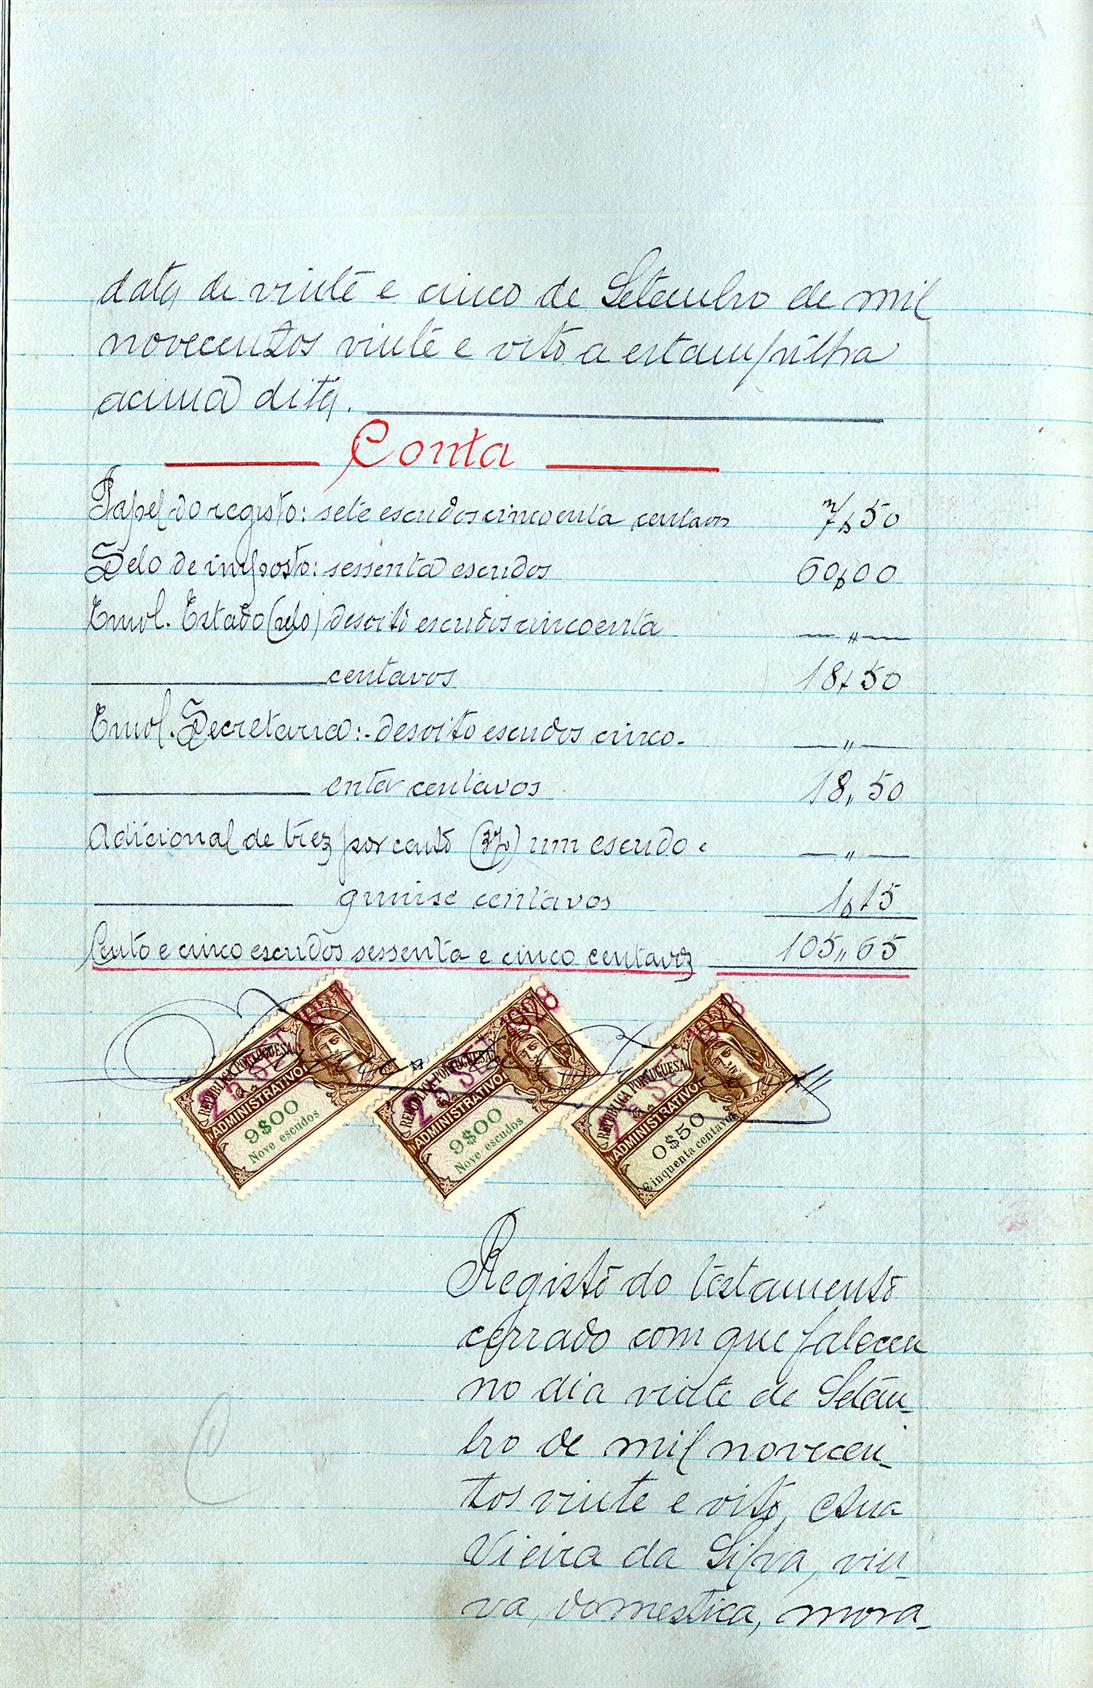 data de vinte e cinco de Setembro de mil
novecentos vinte e oito a estampilha
acima dita.
Conta
Papel do registo: sete escudos cincoenta centavos 7$50
Selo de imposto: sessenta escudos 60$00
Emol. Estado (selo) desoito escudos cincoenta — " —
centavos 18$50
Emol. Secretaria:- desoito escudos cinco- — " —
enta centavos 18,,50
Adicional de trez por cento (3%) um escudo e — " —
quinse centavos 1$15
Cento e cinco escudos sessenta e cinco centavos 105,,65
25 SET 1928
REPUBLICA PORTUGUESA
ADMINISTRATIVO
9$00
Nove escudos
25 SET 1928
REPUBLICA PORTUGUESA
ADMINISTRATIVO
9$00
Nove escudos
25 SET 1928
REPUBLICA PORTUGUESA
ADMINISTRATIVO
0$50
Cinquenta centavos
Registo do testamento
cerrado com que faleceu
no dia vinte de Setem-
bro de mil novecen-
tos vinte e oito, Ana
Vieira da Silva, viu-
va, domestica, mora-